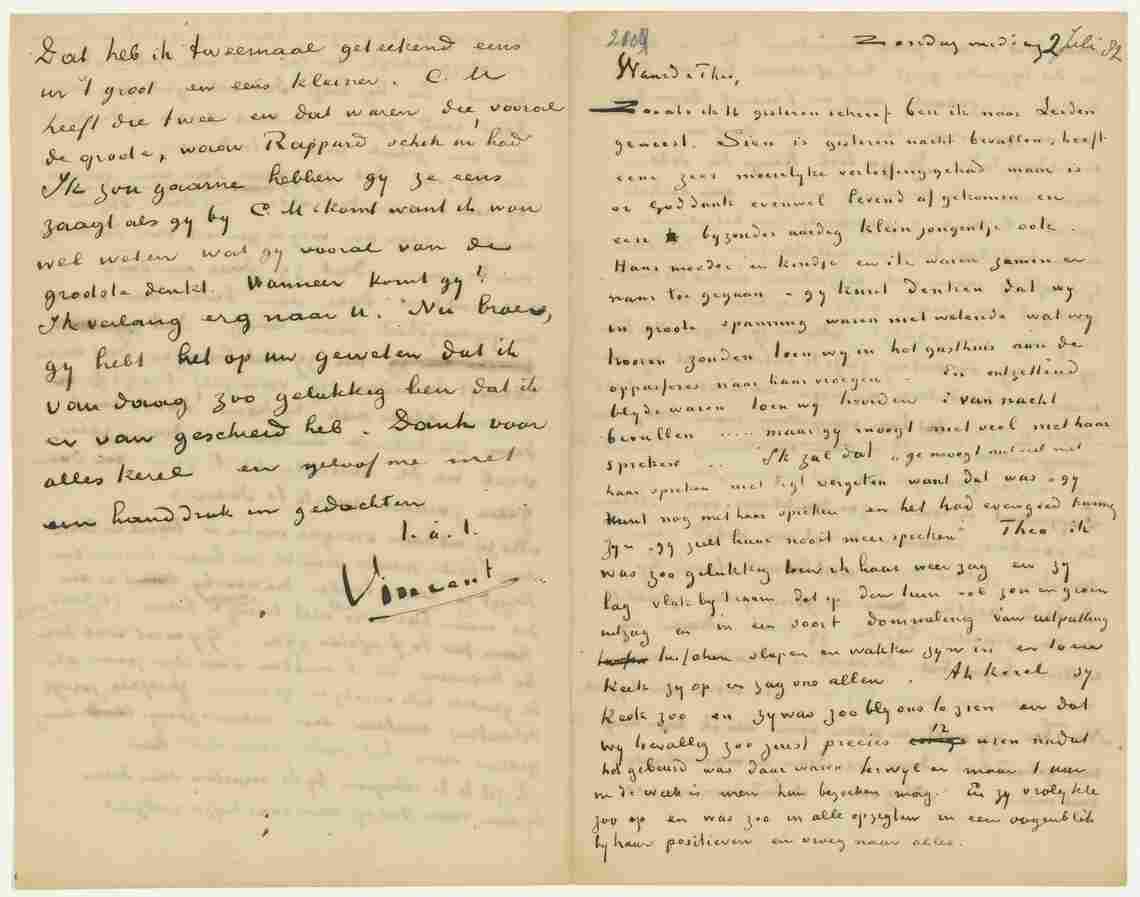 Dat heb ik tweemaal geteekend eens
in 't groot en eens kleiner. C. M
heeft die twee en dat waren die, vooral
de groote, waar Rappard schik in had
Ik zou gaarne hebben gy ze eens
zaagt als gy by C. M. komt want ik wou
wel weten wat gy vooral van de
grootste denkt. Wanneer komt gy?
Ik verlang erg naar U. Nu broer,
gy hebt het op uw geweten dat ik
van daag zoo gelukkig ben dat ik
er van geschreid heb. Dank voor
alles kerel en geloof me met
een handdruk in gedachten
t. à. t.
Vincent
Zondag middag 2 Juli 82
Waarde Theo,
Zooals ik U gisteren schreef ben ik naar Leiden
geweest. Sien is gisteren nacht bevallen, heeft
eene zeer moeielyke verlossing gehad maar is
er Goddank evenwel levend afgekomen en
een byzonder aardig klein jongentje ook.
Haar moeder en kindje en ik waren zamen er
naar toe gegaan – gy kunt denken dat wy
in groote spanning waren niet wetende wat wy
hooren zouden toen wy in het gasthuis aan de
oppasseres naar haar vroegen – En ontzettend
blyde waren toen wy hoorden "van nacht
bevallen .... maar gy moogt niet veel met haar
spreken" .. Ik zal dat "ge moogt niet veel met
haar spreken" niet ligt vergeten want dat was "gy
kunt nog met haar spreken" en het had evengoed kunnen
zyn "gy zult haar nooit meer spreken" Theo ik
was zoo gelukkig toen ik haar weer zag en zy
lag vlak by t raam dat op den tuin vol zon en groen
uitzag en in een soort dommeling van uitputting
tusschen slapen en wakker zyn in en toen
keek zy op en zag ons allen. Ah kerel zy
keek zoo en zy was zoo bly ons te zien en dat
wy toevallig zoo juist precies 12 uren nadat
het gebeurd was daar waren terwyl er maar 1 uur
in de week is men hun bezoeken mag. En zy vrolykte
zoo op en was zoo in alle opzigten in een oogenblik
by haar positieven en vroeg naar alles.